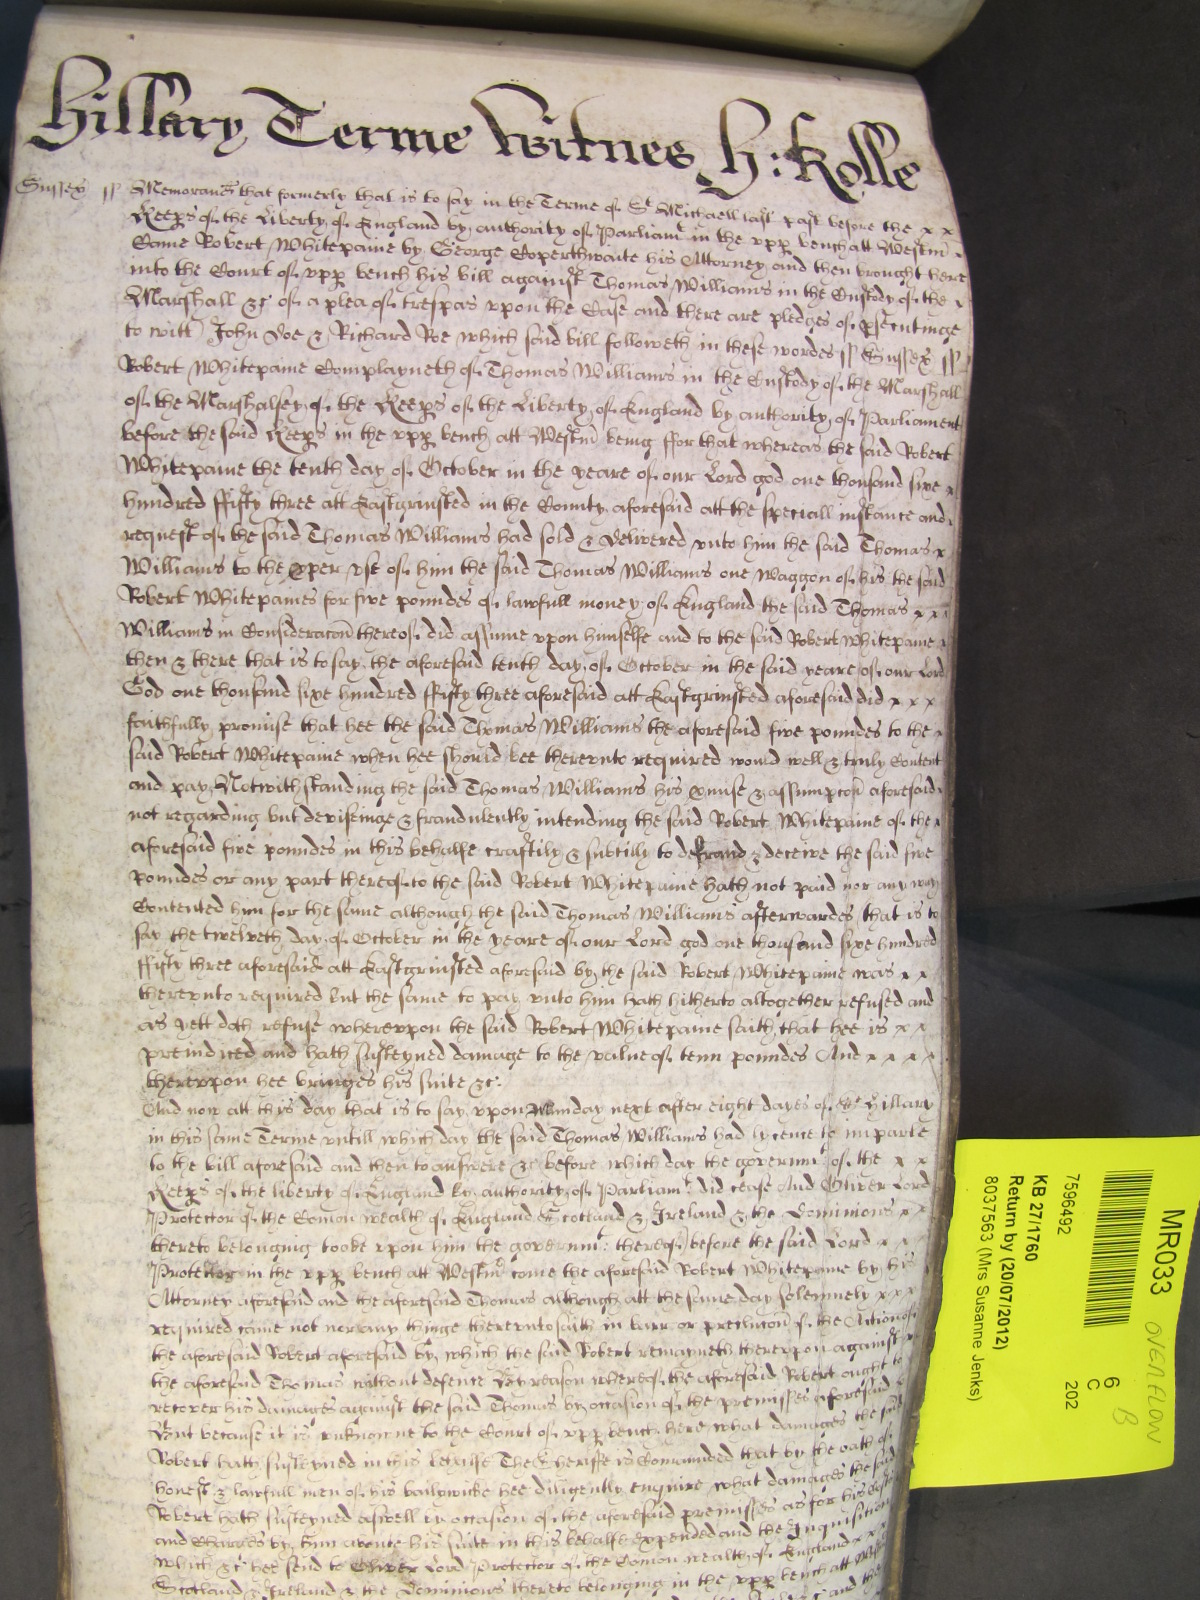 Hillary Terme Witnes H: Rolle
Sussex ss Memorand that formerly that is to say in the Terme of St Michaell last past before the x x
Keeps of the Liberty of England by authority of Parliamt in the vpp bench att Westm x
Came Robert Whitepaine by George Copperthwaite his Attorney and then brought here
into the Court of vpp bench his bill against Thomas Williams in the Custody of the x
Marshall &c of a plea of trespas vpon the Case and there are pledges of psecutinge
to witt John Doe & Richard Roe which said bill followeth in these wordes ss Sussex ss
Robert Whitepaine Complayneth of Thomas Williams in the Custody of the Marshall
of the Marshalsey of the Keeps of the Liberty of England by authority of Parliament
before the said Keeps in the vpp bench att Westm being ffor that whereas the said Robert
Whitepaine the tenth day of October in the yeare of our Lord god one thousand sixe x
hundred ffifty three att Eastgrinsted in the County aforesaid att the speciall instance and
request of the said Thomas Williams had sold & delivered vnto him the said Thomas x
Williams to the pper vse of him the said Thomas Williams one Waggon of his the said
Robert Whitepaines for five poundes of lawfull money of England the said Thomas x x x
Williams in Consideracon thereof did assume vpon himselfe and to the said Robert Whitepaine x
then & there that is to say the aforesaid tenth day of October in the said yeare of our Lord
God one thousand sixe hundred ffifty three aforesaid att Eastgrinsted aforesaid did x x x
faithfully promise that hee the said Thomas Williams the aforesaid five poundes to the x
said Robert Whitepaine when hee should bee therevnto required would well & truly Content
and pay Notwithstanding the said Thomas Williams his pmise & assumpcon aforesaid
not regarding but deviseinge & fraudulently intending the said Robert Whitepaine of the x
aforesaid five poundes in this behalfe craftily & subtilly to defraud & deceive the said five
poundes or any part thereof to the said Robert Whitepaine hath not paid nor any way
Contented him for the same although the said Thomas Williams afterwardes that is to
say the twelveth day of October in the yeare of our Lord god one thousand sixe hundred
ffifty three aforesaid att Eastgrinsted aforesaid by the said Robert Whitepaine was x x
therevnto required but the same to pay vnto him hath hitherto altogether refused and
as yett doth refuse wherevpon the said Robert Whitepaine saith that hee is x x
preiudiced and hath susteyned damage to the value of tenn poundes And x x x x
therevpon hee bringes his suite &c
And now att this day that is to say vpon Munday next after eight dayes of St Hillary
in this same Terme vntill which day the said Thomas Williams had lycence to imparle
to the bill aforesaid and then to answere &c before which day the governmt of the x x
Keeps of the liberty of England by authority of Parliamt did cease And Oliver Lord
Protector of the Comon wealth of England Scotland & Ireland & the Dominions x x
thereto belonging tooke vpon him the governmt thereof before the said Lord x x
Protector in the vpp bench att Westm come the aforesaid Robert Whitepaine by his
Attorney aforesaid and the aforesaid Thomas although att the same day solemnely x x x
required came not nor any thinge therevnto saith in barr or preclucon of the Action of
the aforesaid Robert aforesaid by which the said Robert remayneth therevpon against
the aforesaid Thomas without defence By reason whereof the aforesaid Robert ought to
recover his damages against the said Thomas by occasion of the premisses aforesaid
But because it is vnknowne to the Court of vpp bench here what damages the said
Robert hath susteyned in this behalfe The Sheriffe is Comanded that by the oath of
honest & lawfull men of his bailywicke hee diligently enquire what damages the said
Robert hath susteyned aswell by occasion of the aforesaid premisses as for his costs
and Charges by him aboute his suite in this behalfe expended and the Inquisition
which &c hee send to Oliver Lord Protector of the Comon wealth of England x x x
Scotland & Ireland & the Dominions thereto belonging in the vpp bench att Westm
MR033
6
C
202
7596492
KB 27/1760
Return by (20/07/2012)
8037563 (Mrs Susanne Jenks)
OVERFLOW
B